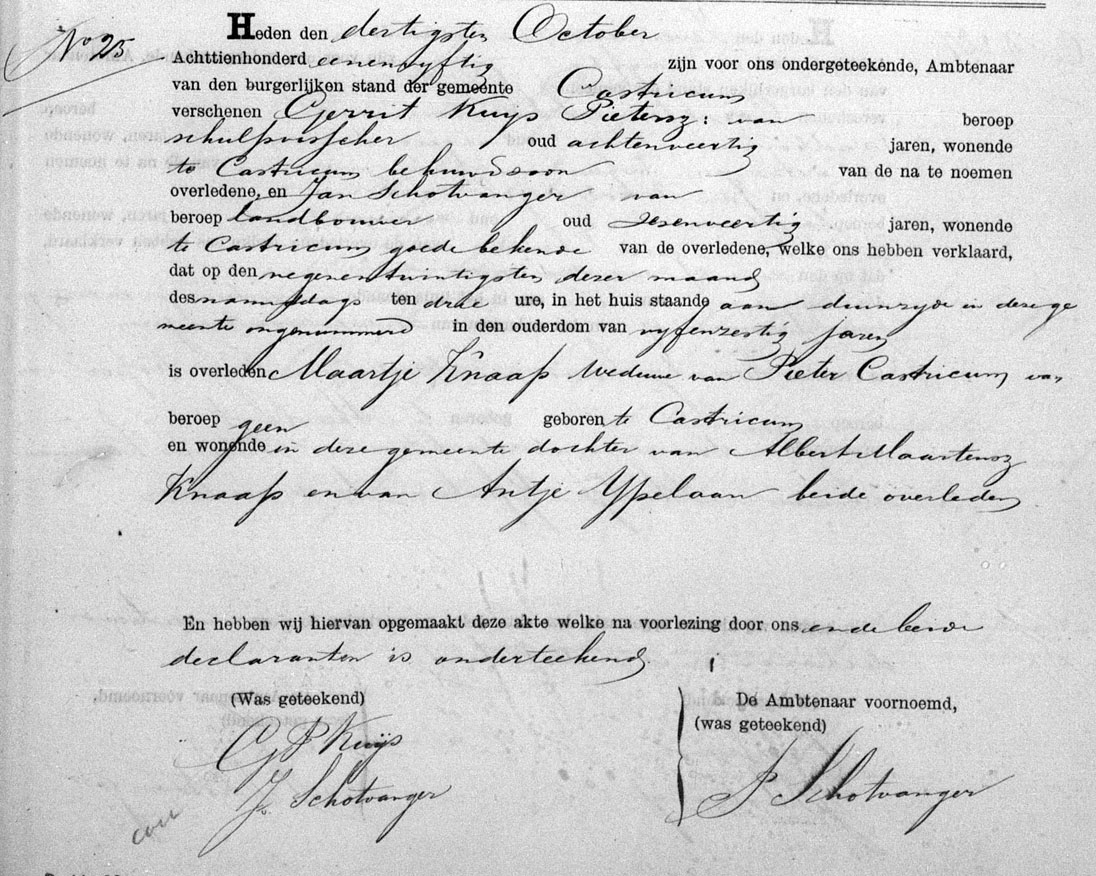 No 25
Heden den dertigsten October
Achttienhonderd eenenvyftig zijn voor ons ondergeteekende, Ambtenaar
van den burgerlijken stand der gemeente Castricum
verschenen Gerrit Kuys Pietersz: van beroep
schulpvisscher oud achtenveertig jaren, wonende
te Castricum behuwdzoon van de na te noemen
overledene, en Jan Schotvanger van
beroep landbouwer oud zesenveertig jaren, wonende
te Castricum goede bekende van de overledene, welke ons hebben verklaard,
dat op den negenentwintigsten dezer maand
des namiddags ten drie ure, in het huis staande aan duinzyde in deze ge
meente ongenummerd in den ouderdom van vyfenzestig jaren
is overleden Maartje Knaap weduwe van Pieter Castricum van
beroep geen geboren te Castricum
en wonende in deze gemeente dochter van Albert Maartensz
Knaap en van Antje Ypelaan beide overleden
En hebben wij hiervan opgemaakt deze akte welke na voorlezing door ons en de beide
declaranten is onderteekend
(Was geteekend)
G P Kuijs
J. Schotvanger
De Ambtenaar voornoemd,
(was geteekend)
P Schotvanger